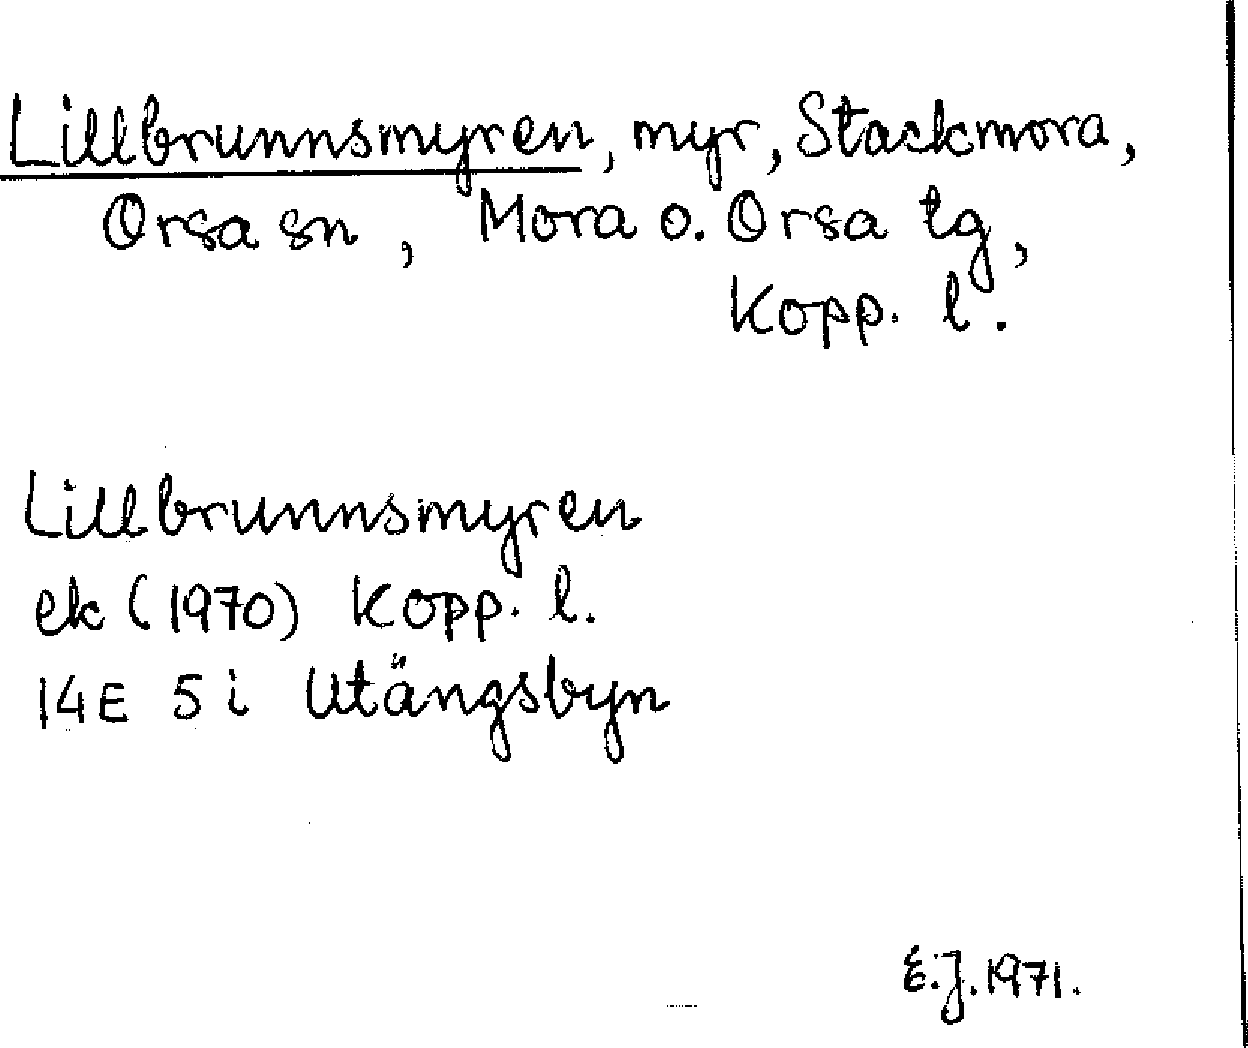 Lillbrunnsmyren, myr, Stackmora,
Orsa sn, Mora o. Orsa tg,
Kopp. l.
Lillbrunnsmyren
ek (1970) Kopp. l.
14E 5i Utängsbyn
E.J. 1971.